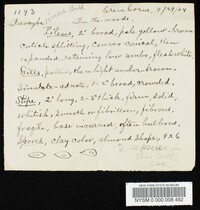 1193
7/29/04
In the woods.
Pileus, 2" broad, pale yellow-brown
Cuticle splitting, convex-conical, then
expanded, retaining low umbo, fleshwhite
Gills, pallid then light umber-brown.
Sinuate-adnate, 1-2" broad, crowded,
Stipe, 2" long, 2-3" thick, firm, solid,
whitish, smooth or fibrillose, fibrous,
fragile, base incurved, often bulbous.
Spores, clay color, almond shape, 9x6
NEW YORK STATE MUSEUM
NYSM 0 000 008 492